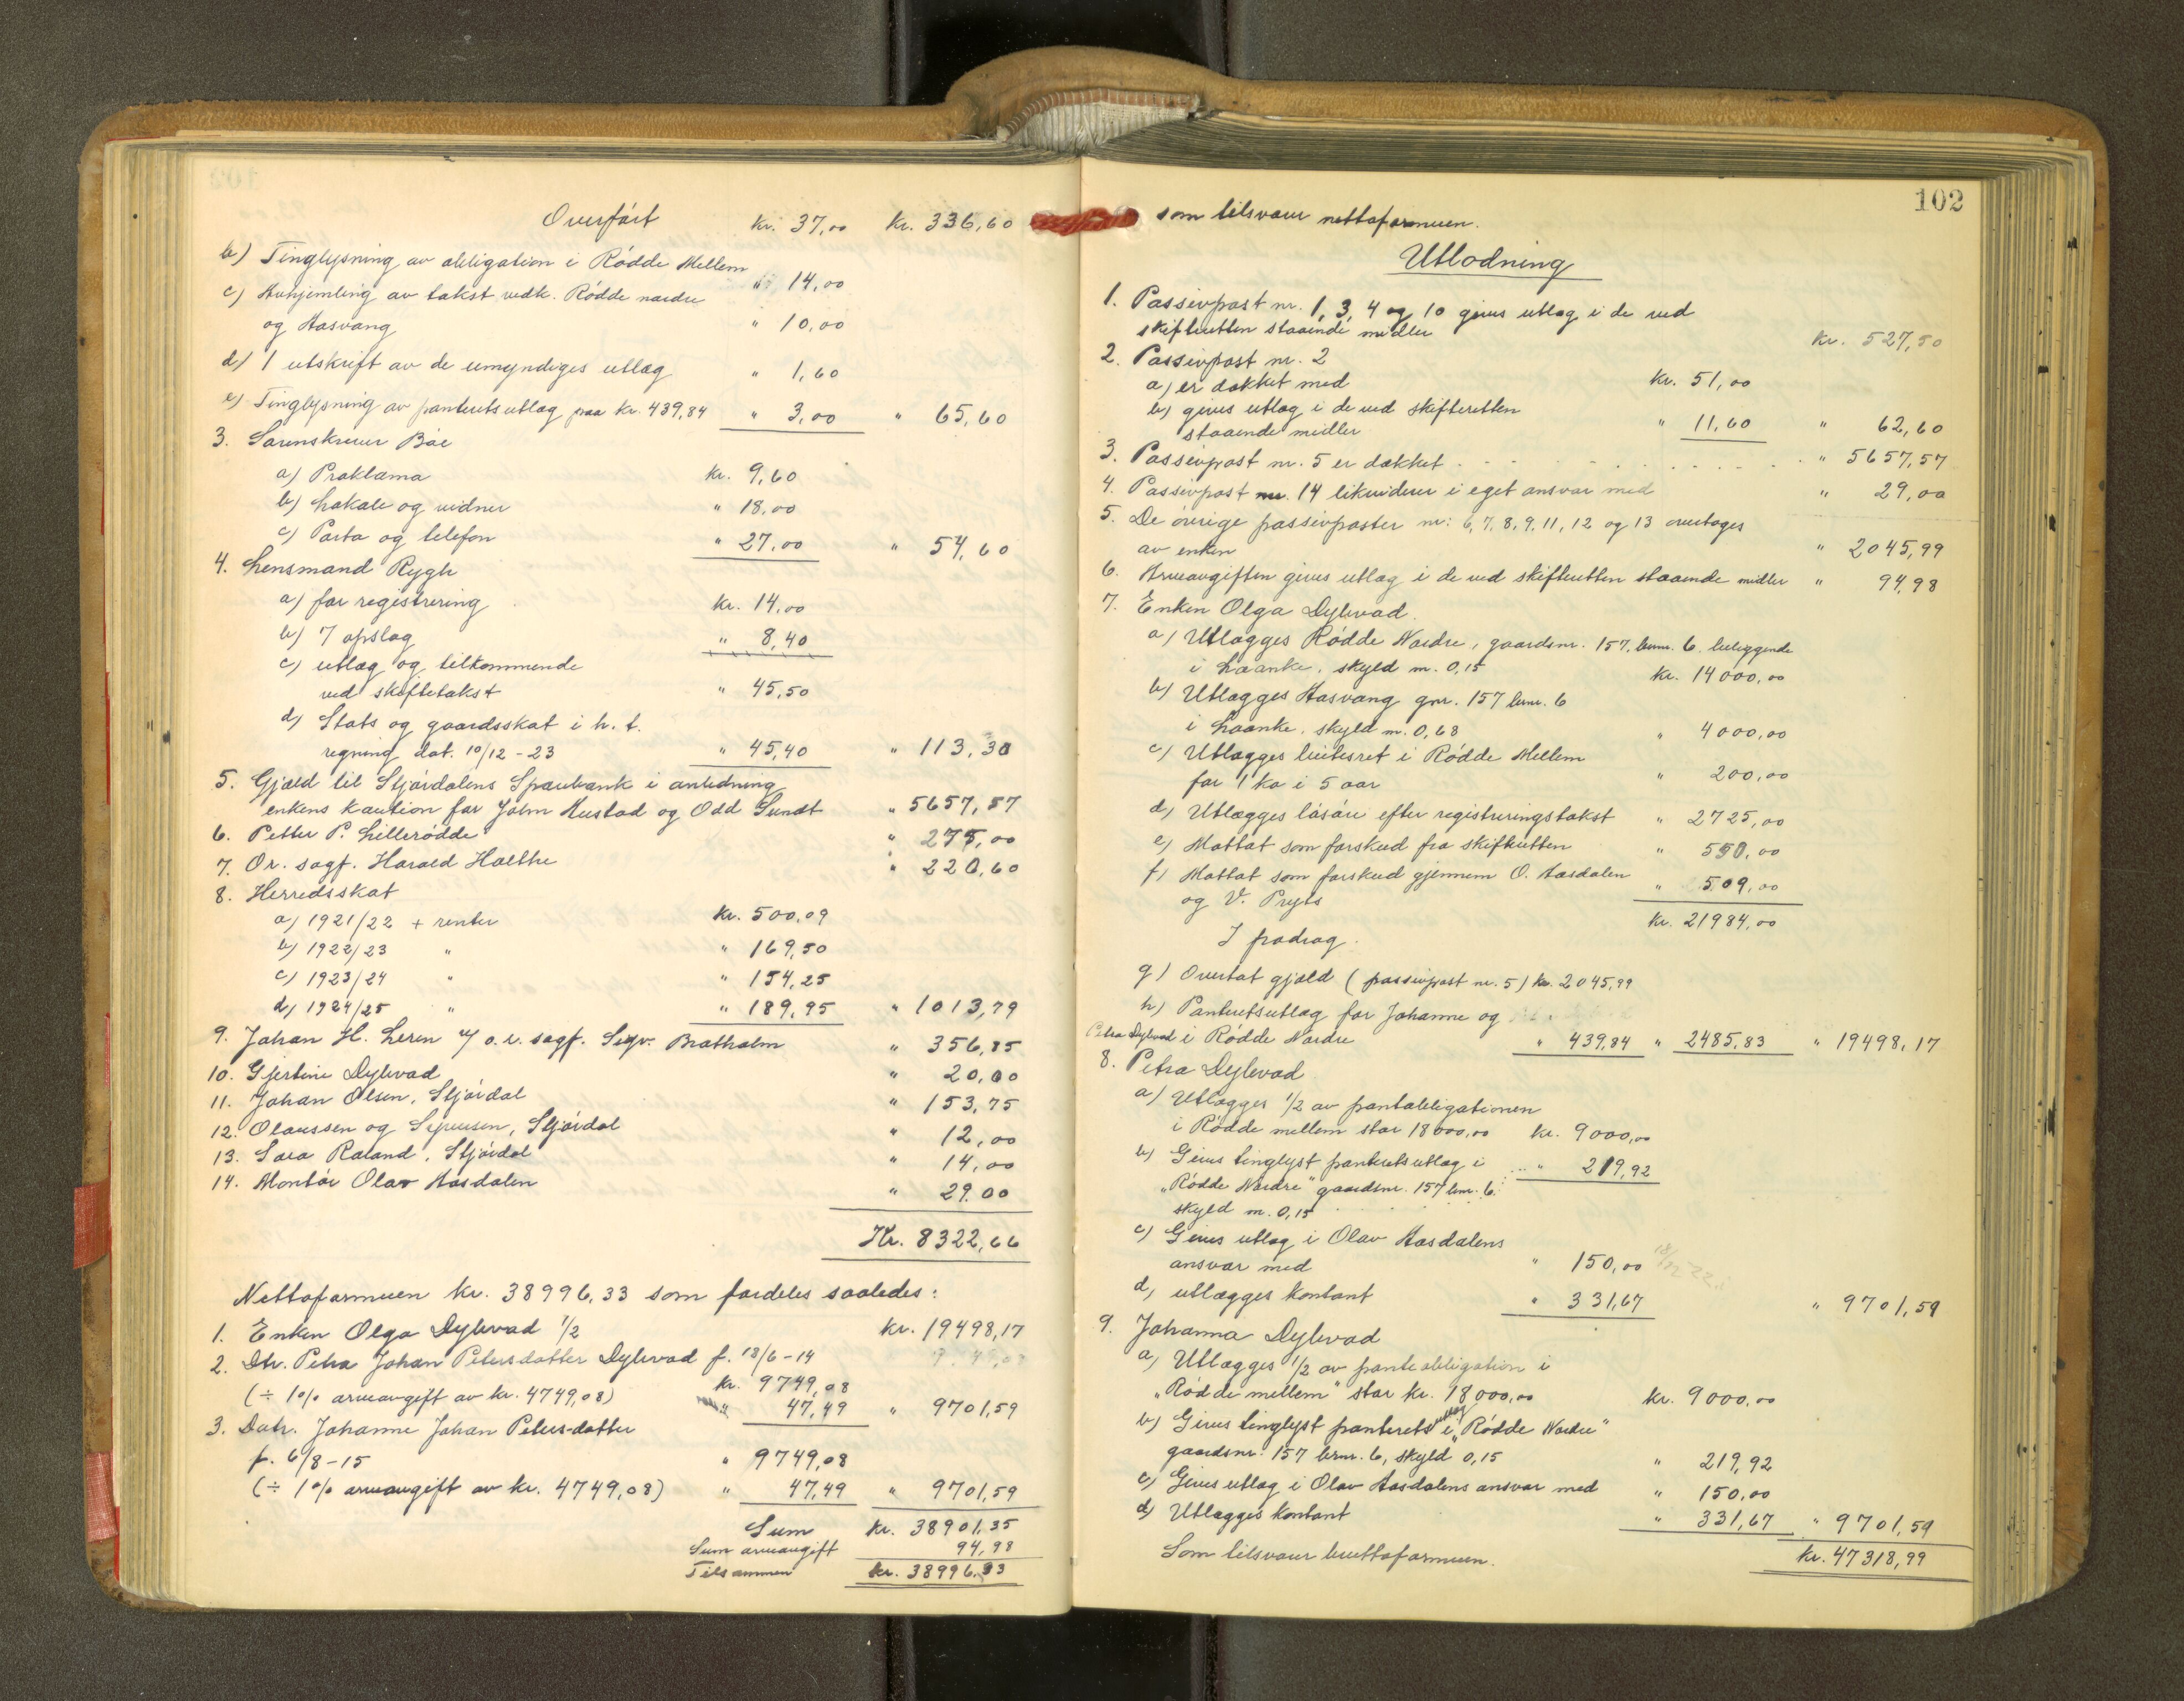 Overført kr. 37,00 kr. 336,60
b) Tinglysning av obligation i Rødde Mellem " 14,00
c) Avhjemling av takst vedk. Rødde nordre
og Aasvang " 10,00
d) 1 utskrift av de umyndiges utlæg " 1,60
e) Tinglysning av panterets utlæg paa kr. 439,84 " 3,00 " 65,60
3. Sorenskriver Bøe
a) Proklama kr. 9,60
b) Lokale og vidner " 18,00
c) Porto og telefon " 27,00 " 54,60
4. Lensmand Rygh
a) for registrering kr. 14,00
b) 7 opslag " 8,40
c) utlæg og tilkommende
ved skiftetakst " 45,50
d) Stats og gaardsskat i h. t.
regning dat. 10/12 - 23 " 45,40 " 113,30
5. Gjæld til Stjørdalens Sparebank i anledning
enkens kaution for John Hustad og Odd Sundt " 5657,57
6. Petter P. Lillerødde " 275,00
7. Or. sagf. Harald Holthe " 220,60
8. Herredsskat
a) 1921/22 + renter kr. 500,09
b) 1922/23 " " 169,50
c) 1923/24 " " 154,25
d) 1924/25 " " 189,95 " 1013,79
9. Johan H. Leren v/ o.r. sagf. Sigv. Bratholm " 356,85
10. Gjertine Dybvad " 20,00
11. Johan Olsen, Stjørdal " 153,75
12. Olaussen og Syversen, Stjørdal " 12,00
13. Sara Raland, Stjørdal " 14,00
14. Montør Olav Aasdalen " 29.00
Kr. 8322,66
Nettoformuen kr. 38996,33 som fordeles saaledes:
1. Enken Olga Dybvad 1/2 kr. 19498,17
2. Dtr. Petra Johan Petersdatter Dybvad f. 18/6-14
kr. 9749,08
(÷ 1% arveavgift av kr. 4749,08) " 47,49 " 9701,59
3. Datr. Johanne Johan Peters-datter
f. 6/8-15 " 9749,08
(÷ 1% arveavgift av kr. 4749,08) " 47,49 " 9701,59
Sum kr. 38901,35
Sum arveavgift 94,98
Tilsammen kr. 38996.33
102
som tilsvarer nettoformuen.
Utlodning
1. Passivpost nr. 1, 3, 4 og 10 gives utlæg i de ved
skifteretten staaende midler kr. 527,50
2. Passivpost nr. 2
a) er dækket med kr. 51,00
b) gives utlæg i de ved skifteretten
staaende midler " 11,60 " 62,60
3. Passivpost nr. 5 er dækket " 5657,57
4. Passivpost nr. 14 likviderer i eget ansvar med " 29,00
5. De øvrige passivposter nr: 6, 7, 8, 9, 11, 12 og 13 overtages
av enken " 2045,99
6. Arveavgiften gives utlæg i de ved skifteretten staaende midler " 94,98
7. Enken Olga Dybvad
a) Utlægges Rødde Nordre, gaardsnr. 157, brnr. 6. beliggende
i Laanke, skyld m. 0,15 kr. 14000,00
b) Utlægges Aasvang gnr. 157 brnr. 6
i Laanke, skyld m. 0,68 " 4000,00
c) Utlægges beitesret i Rødde Mellem
for 1 ko i 5 aar " 200,00
d) Utlægges løsøre efter registreringstakst " 2725,00
e) Mottat som forskud fra skifteretten " 550,00
f) Mottat som forskud gjennem O. Aasdalen
og V. Pryts " 509,00
kr. 21984,00
I fradrag.
g) Overtat gjæld (passivpost nr. 5) kr. 2045,99
h) Panterets utlæg for Johanne og
Petra Dybvad i Rødde Nordre " 439,84 " 2485,83 " 19498,17
8. Petra Dybvad
a) Utlægges 1/2 av pantobligationen
i Rødde mellem stor 18000,00 kr. 9000,00
b) Gives tinglyst panterets utlæg i " 219,92
"Rødde Nordre" gaardsnr. 157 brnr. 6.
skyld m. 0,15
c) Gives utlæg i Olav Aasdalens
ansvar med " 150,00
d) utlægges kontant " 331,67 " 9701,59
9. Johanna Dybvad
a) Utlægges 1/2 av panteobligation i
"Rødde mellem" stor kr. 18000,00 kr. 9000,00
b) Gives tinglyst panterets utlæg i "Rødde Nordre"
gaardsnr. 157 brnr. 6, skyld 0,15 " 219,92
c) Gives utlæg i Olav Aasdalens ansvar med " 150,00
d) Utlægges kontant " 331,67 " 9701,59
Som tilsvarer bruttoformuen. kr. 47318,99